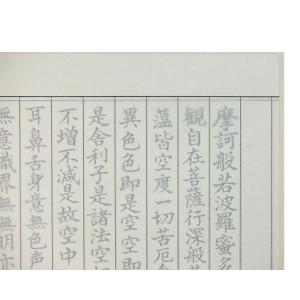 摩訶般若波羅蜜多
観自在菩薩行深般若
薀皆空度一切苦厄舎
異色色即是空空即
是舎利子是諸法空相
不増不減是故空中
耳鼻舌身意無色声
無意識界無無明亦